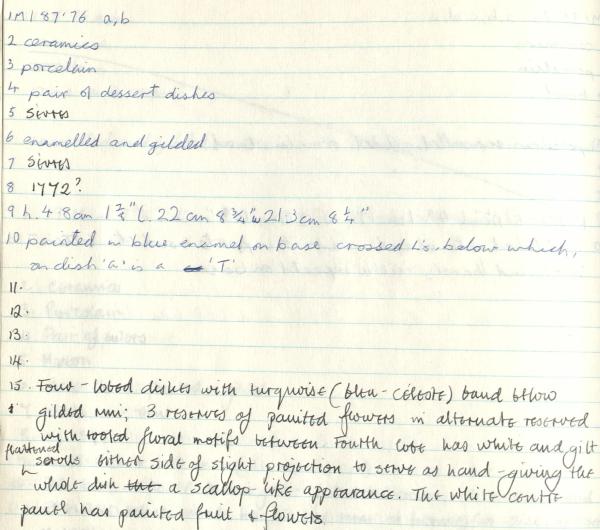 1 M187'76 a,b
2 ceramics
3 porcelain
4 pair of dessert dishes
5 Sèvres
6 enamelled and gilded
7 Sèvres
8 1772?
9 h. 4.8cm 1 ⅞" l. 22 cm 8 ¾" w 21.3cm 8 ¼"
10 painted in blue enamel on base crossed L's. below which,
on dish 'a' is a 'T'
11.
12.
13.
14.
15. Four-lobed dishes with turquoise (bleu-céleste) band below
gilded rim; 3 reserves of painted flowers in alternate reserved
with tooled floral motifs between fourth lobe has white and gilt
flattened
scrolls either side of slight projection to serve as hand-giving the
whole dish a scallop like appearance. The white centre
panel has painted fruit & flowers